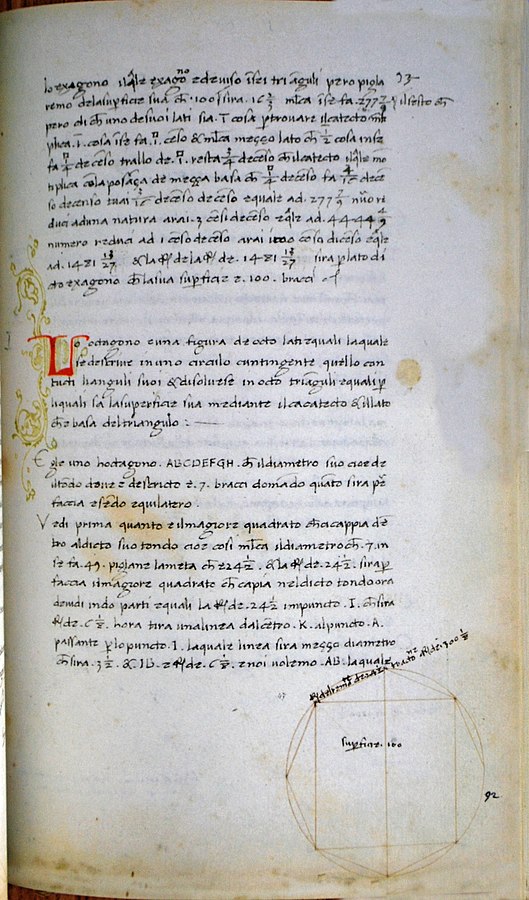 lo exagono il q̄le exagono e deviso i sei trianguli pero pigla
remo dela supficie sua ch̄ . 100 . sira . 16 2/3 ml̄ca ise fa . 277 7/9 il sesto ch̄
93
pero di ch̄ uno de suoi lati sia . 1̄ . cosa p̄ trovare il catecto ml̄ti
plica . 1̄ . cosa ise fa . 1̄ . celo & ml̄ca meçço lato ch̄ 1/2 cosa inse
fa 1/4 de celo trallo de . 1̄ . resta 3/4 de celo ch̄ il catecto il q̄le mo
tiplica cō la posāça de meçça basa ch̄ 1/4 de celo fa 3/16 de ce
so de celo tu ai 3/16 de celo de celo equale ad . 277 7/9 nūo ri
duci ad una natura arai . 3 cesi de celo eq̄le ad . 4444 4/9
numero reduci ad 1 celo de celo arai 1000 ceso di ceso eq̄le
ad . 1481 13/27 & la R de la R de . 1481 13/27 sira p lato di
do exagono ch̄ la sua supficie e . 100 . bracci
Uo octagono e una figura de octo lati equali la quale
se descrive in uno circulo cuntingente quello con
tucti li anguli suoi & disolvese in octo trianguli equali p
li quali sa la superficie sua mediante il cacatecto & il lato
ch̄ e basa del triangulo : —
Egle uno hoctagono . ABCDEFGH . ch̄ il diametro suo cioe de
il tōdo dove e descricto e . 7 . bracci domādo quāto sira p̄
faccia esēdo equilatero
Vedi prima quanto e il magiore quadrato ch̄ acappia dē
tro al dicto suo tondo cioe cosi ml̄ca il diametro ch̄ . 7 . in
se fa . 49 . piglane la meta ch̄ e 24 1/2 . & la R de . 24 1/2 . sira p
faccia il magiore quadrate ch̄ capia nel dicto tondo ora
devidi indo parti equali la R de . 24 1/2 impuncto . I . ch̄ sira
R de . 6 1/8 . hora tira una linea dal cētro . K . al puncto . A .
passante p lo puncto . I . la quale linea sira meçço diametro
ch̄ sira . 3 1/2 . & IB . e R de . 6 1/8 . e noi volemo . AB . la quale
supficie . 100
92